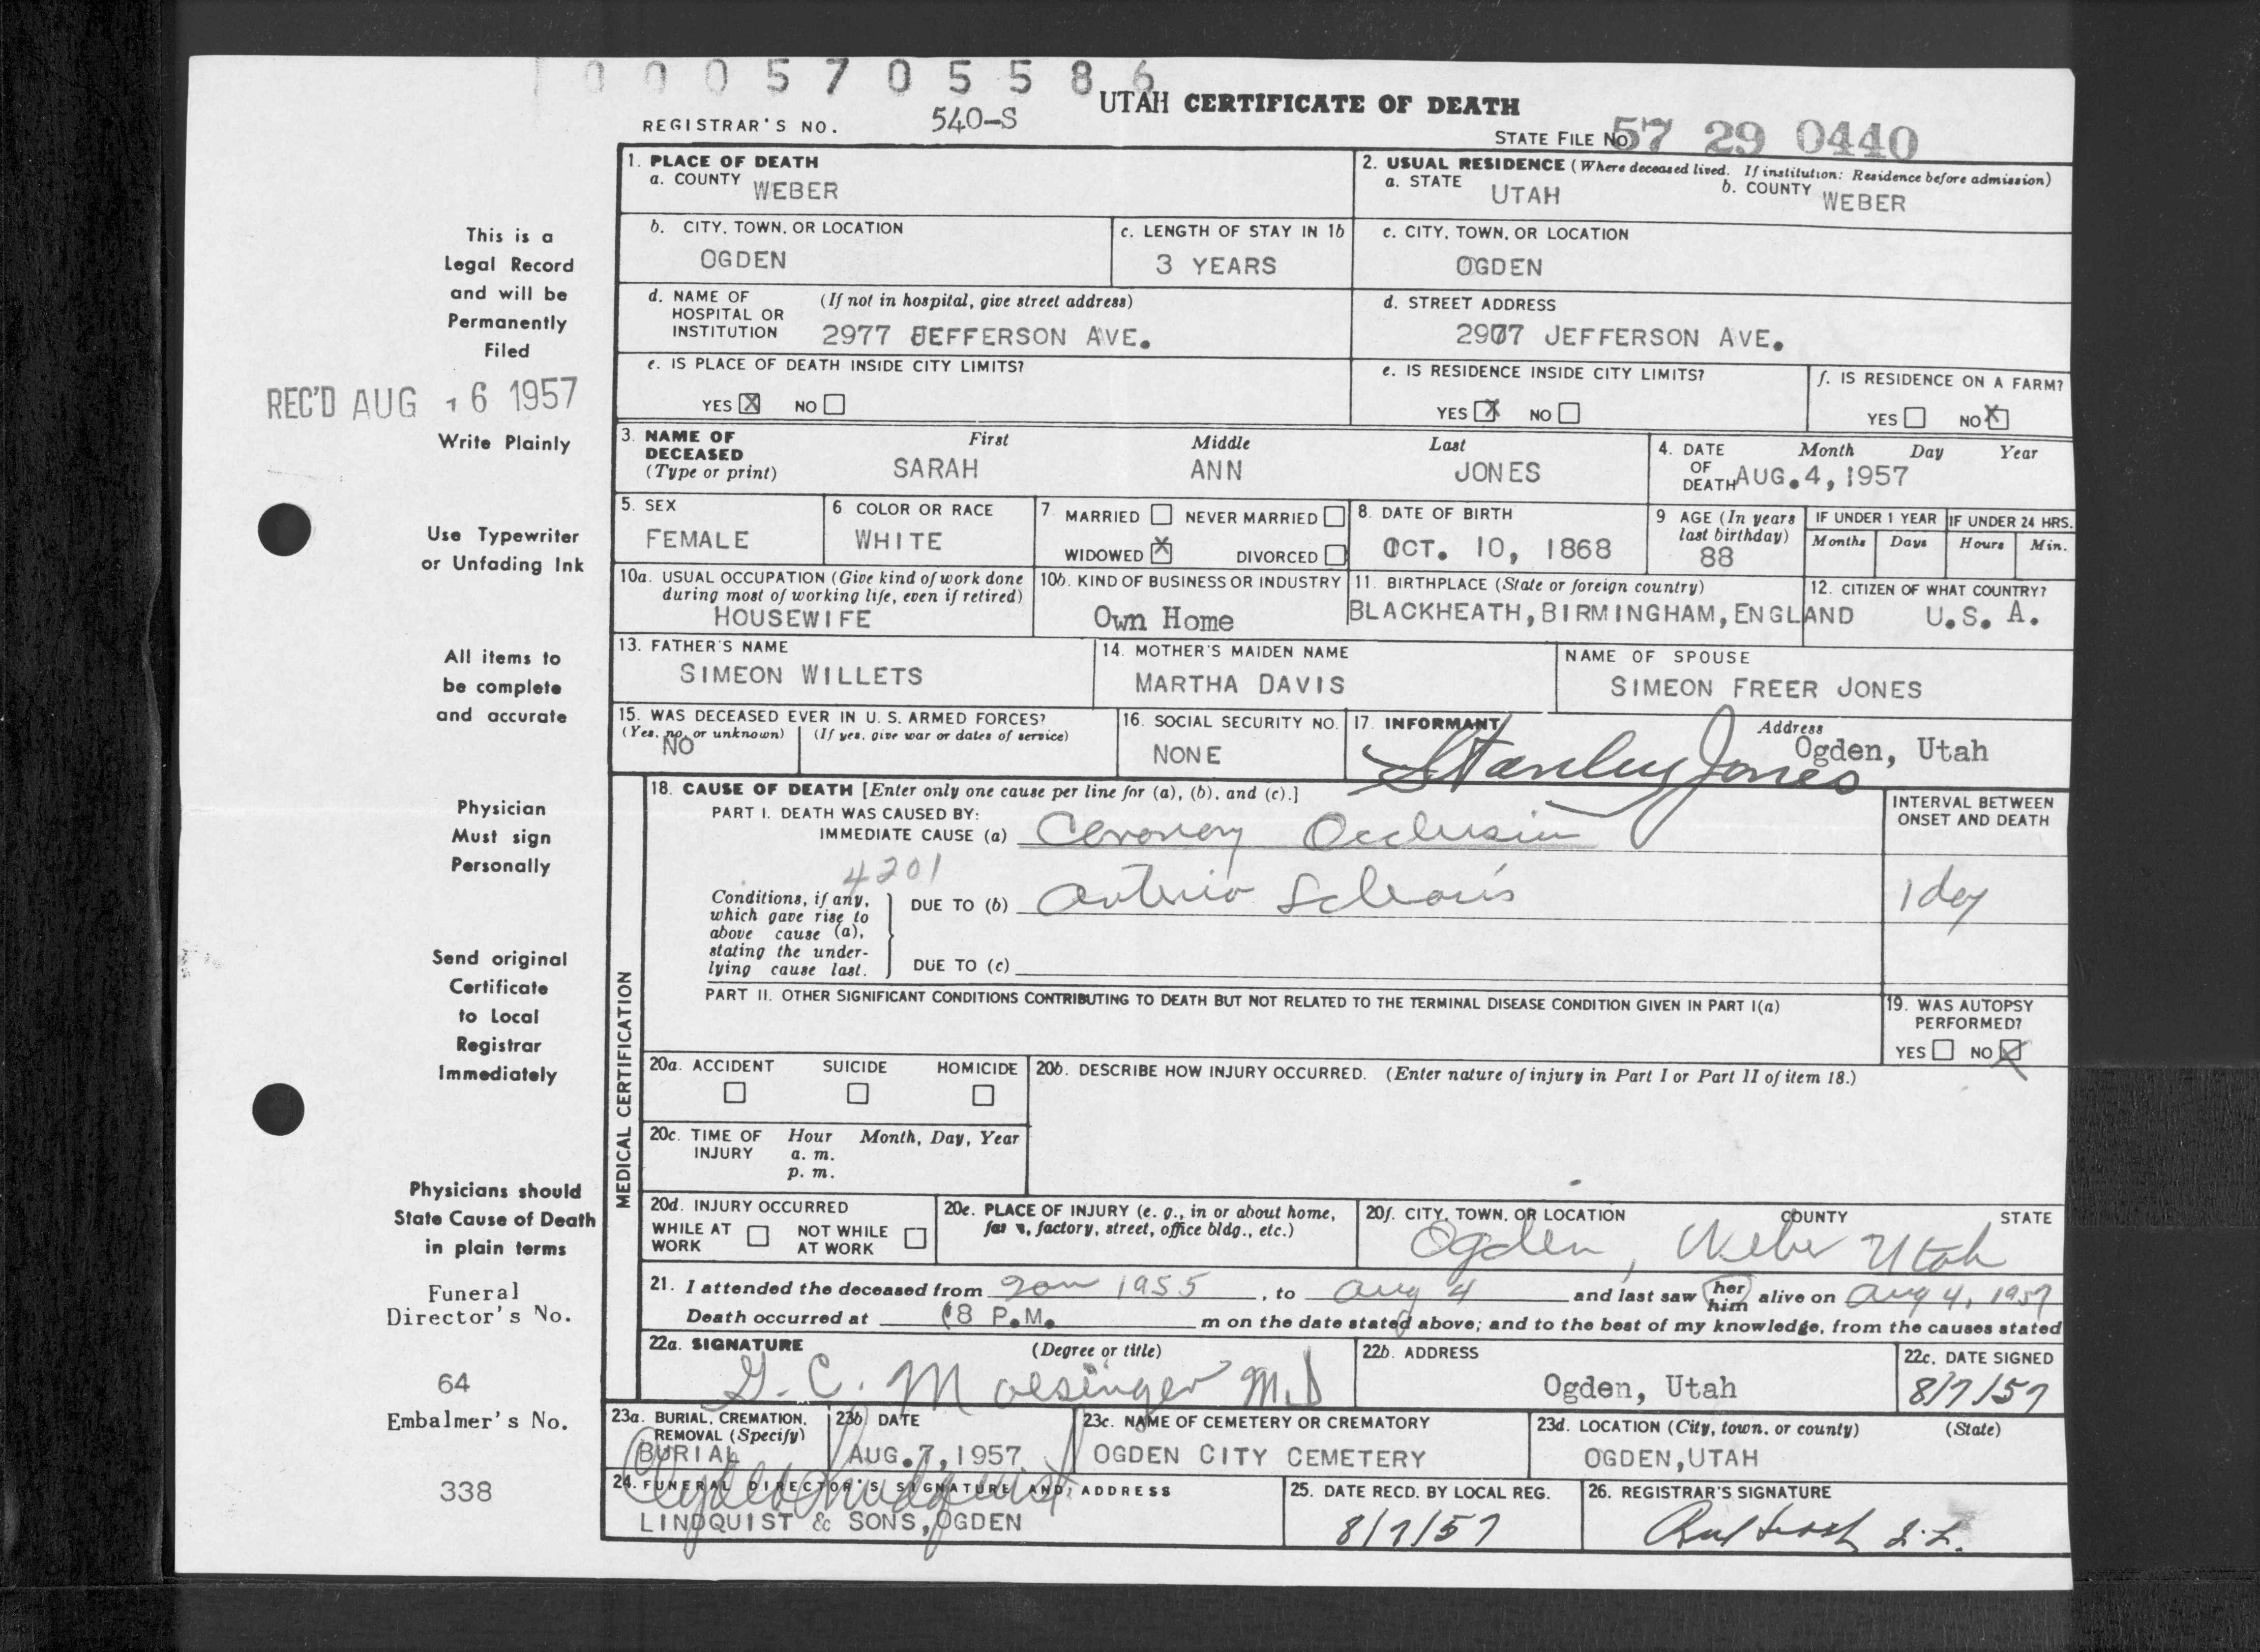 0005705586
UTAH CERTIFICATE OF DEATH
REGISTRAR'S NO. 540-S
STATE FILE NO. 57 29 0440
1. PLACE OF DEATH
a. COUNTY WEBER
2. USUAL RESIDENCE (Where deceased lived. If institution: Residence before admission)
a. STATE UTAH b. COUNTY WEBER
b. CITY, TOWN, OR LOCATION OGDEN
c. LENGTH OF STAY IN 1b 3 YEARS
c. CITY, TOWN, OR LOCATION OGDEN
d. NAME OF HOSPITAL OR INSTITUTION (If not in hospital, give street address) 2977 JEFFERSON AVE.
d. STREET ADDRESS 2977 JEFFERSON AVE.
e. IS PLACE OF DEATH INSIDE CITY LIMITS?
YES X NO
e. IS RESIDENCE INSIDE CITY LIMITS?
YES X NO
f. IS RESIDENCE ON A FARM?
YES NO X
3. NAME OF DECEASED (Type or print)
First Middle Last
SARAH ANN JONES
4. DATE OF DEATH Month Day Year
AUG. 4, 1957
5. SEX FEMALE
6 COLOR OR RACE WHITE
7 MARRIED NEVER MARRIED
WIDOWED X DIVORCED
8. DATE OF BIRTH OCT. 10, 1868
9 AGE (In years last birthday) 88
IF UNDER 1 YEAR Months Days
IF UNDER 24 HRS. Hours Min.
10a. USUAL OCCUPATION (Give kind of work done during most of working life, even if retired) HOUSEWIFE
10b. KIND OF BUSINESS OR INDUSTRY Own Home
11. BIRTHPLACE (State or foreign country) BLACKHEATH, BIRMINGHAM, ENGLAND
12. CITIZEN OF WHAT COUNTRY? U.S. A.
13. FATHER'S NAME SIMEON WILLETS
14. MOTHER'S MAIDEN NAME MARTHA DAVIS
NAME OF SPOUSE SIMEON FREER JONES
15. WAS DECEASED EVER IN U. S. ARMED FORCES?
(Yes, no, or unknown) (If yes, give war or dates of service)
NO
16. SOCIAL SECURITY NO. NONE
17. INFORMANT Stanley Jones
Address Ogden, Utah
MEDICAL CERTIFICATION
18. CAUSE OF DEATH [Enter only one cause per line for (a), (b), and (c).]
PART I. DEATH WAS CAUSED BY:
IMMEDIATE CAUSE (a) Coronary Occlusion
INTERVAL BETWEEN ONSET AND DEATH
4201
Conditions, if any, which gave rise to above cause (a), stating the underlying cause last.
DUE TO (b) Arterio Sclerosis
1 day
DUE TO (c)
PART II. OTHER SIGNIFICANT CONDITIONS CONTRIBUTING TO DEATH BUT NOT RELATED TO THE TERMINAL DISEASE CONDITION GIVEN IN PART I(a)
19. WAS AUTOPSY PERFORMED?
YES NO X
20a. ACCIDENT SUICIDE HOMICIDE
20b. DESCRIBE HOW INJURY OCCURRED. (Enter nature of injury in Part I or Part II of item 18.)
20c. TIME OF INJURY Hour Month, Day, Year
a. m.
p. m.
20d. INJURY OCCURRED
WHILE AT WORK NOT WHILE AT WORK
20e. PLACE OF INJURY (e. g., in or about home, farm, factory, street, office bldg., etc.)
20f. CITY, TOWN, OR LOCATION COUNTY STATE
Ogden, Weber Utah
21. I attended the deceased from Jan 1955, to Aug 4 and last saw her him alive on Aug 4, 1957
Death occurred at 8 P.M. m on the date stated above; and to the best of my knowledge, from the causes stated
22a. SIGNATURE (Degree or title)
G. C. Moesinger M.D
22b. ADDRESS Ogden, Utah
22c. DATE SIGNED 8/7/57
23a. BURIAL, CREMATION, REMOVAL (Specify) BURIAL
23b. DATE AUG. 7, 1957
23c. NAME OF CEMETERY OR CREMATORY OGDEN CITY CEMETERY
23d. LOCATION (City, town, or county) (State) OGDEN, UTAH
24. FUNERAL DIRECTOR'S SIGNATURE AND ADDRESS
LINDQUIST & SONS, OGDEN
25. DATE RECD. BY LOCAL REG. 8/7/57
26. REGISTRAR'S SIGNATURE
This is a
Legal Record
and will be
Permanently
Filed
REC'D AUG 16 1957
Write Plainly
Use Typewriter
or Unfading Ink
All items to
be complete
and accurate
Physician
Must sign
Personally
Send original
Certificate
to Local
Registrar
Immediately
Physicians should
State Cause of Death
in plain terms
Funeral
Director's No.
64
Embalmer's No.
338